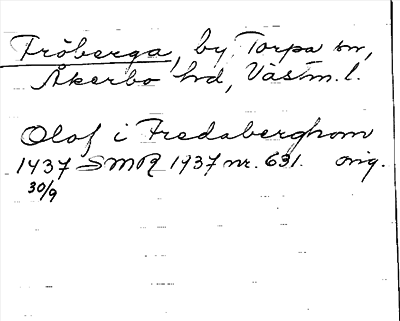 Fröberga, by, Torpa sn,
Åkerbo hd, Västm. l.
Olof i Fredaberghom
1437 SMR 1937 nr. 631. orig.
30/9